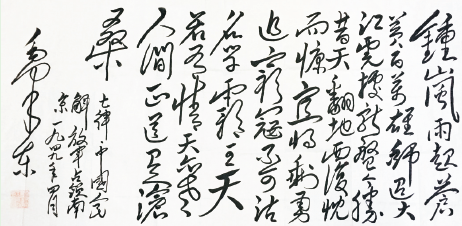 鍾山風雨起蒼
黄百萬雄師过大
江虎據龍盤今勝
昔天翻地覆慨
而慷宜將剩勇
追窮寇不可沽
名学霸王天
若有情天亦老
人間正道是滄
桑
七律·中國人民
解放军占領南
京一九四九年四月
毛泽东